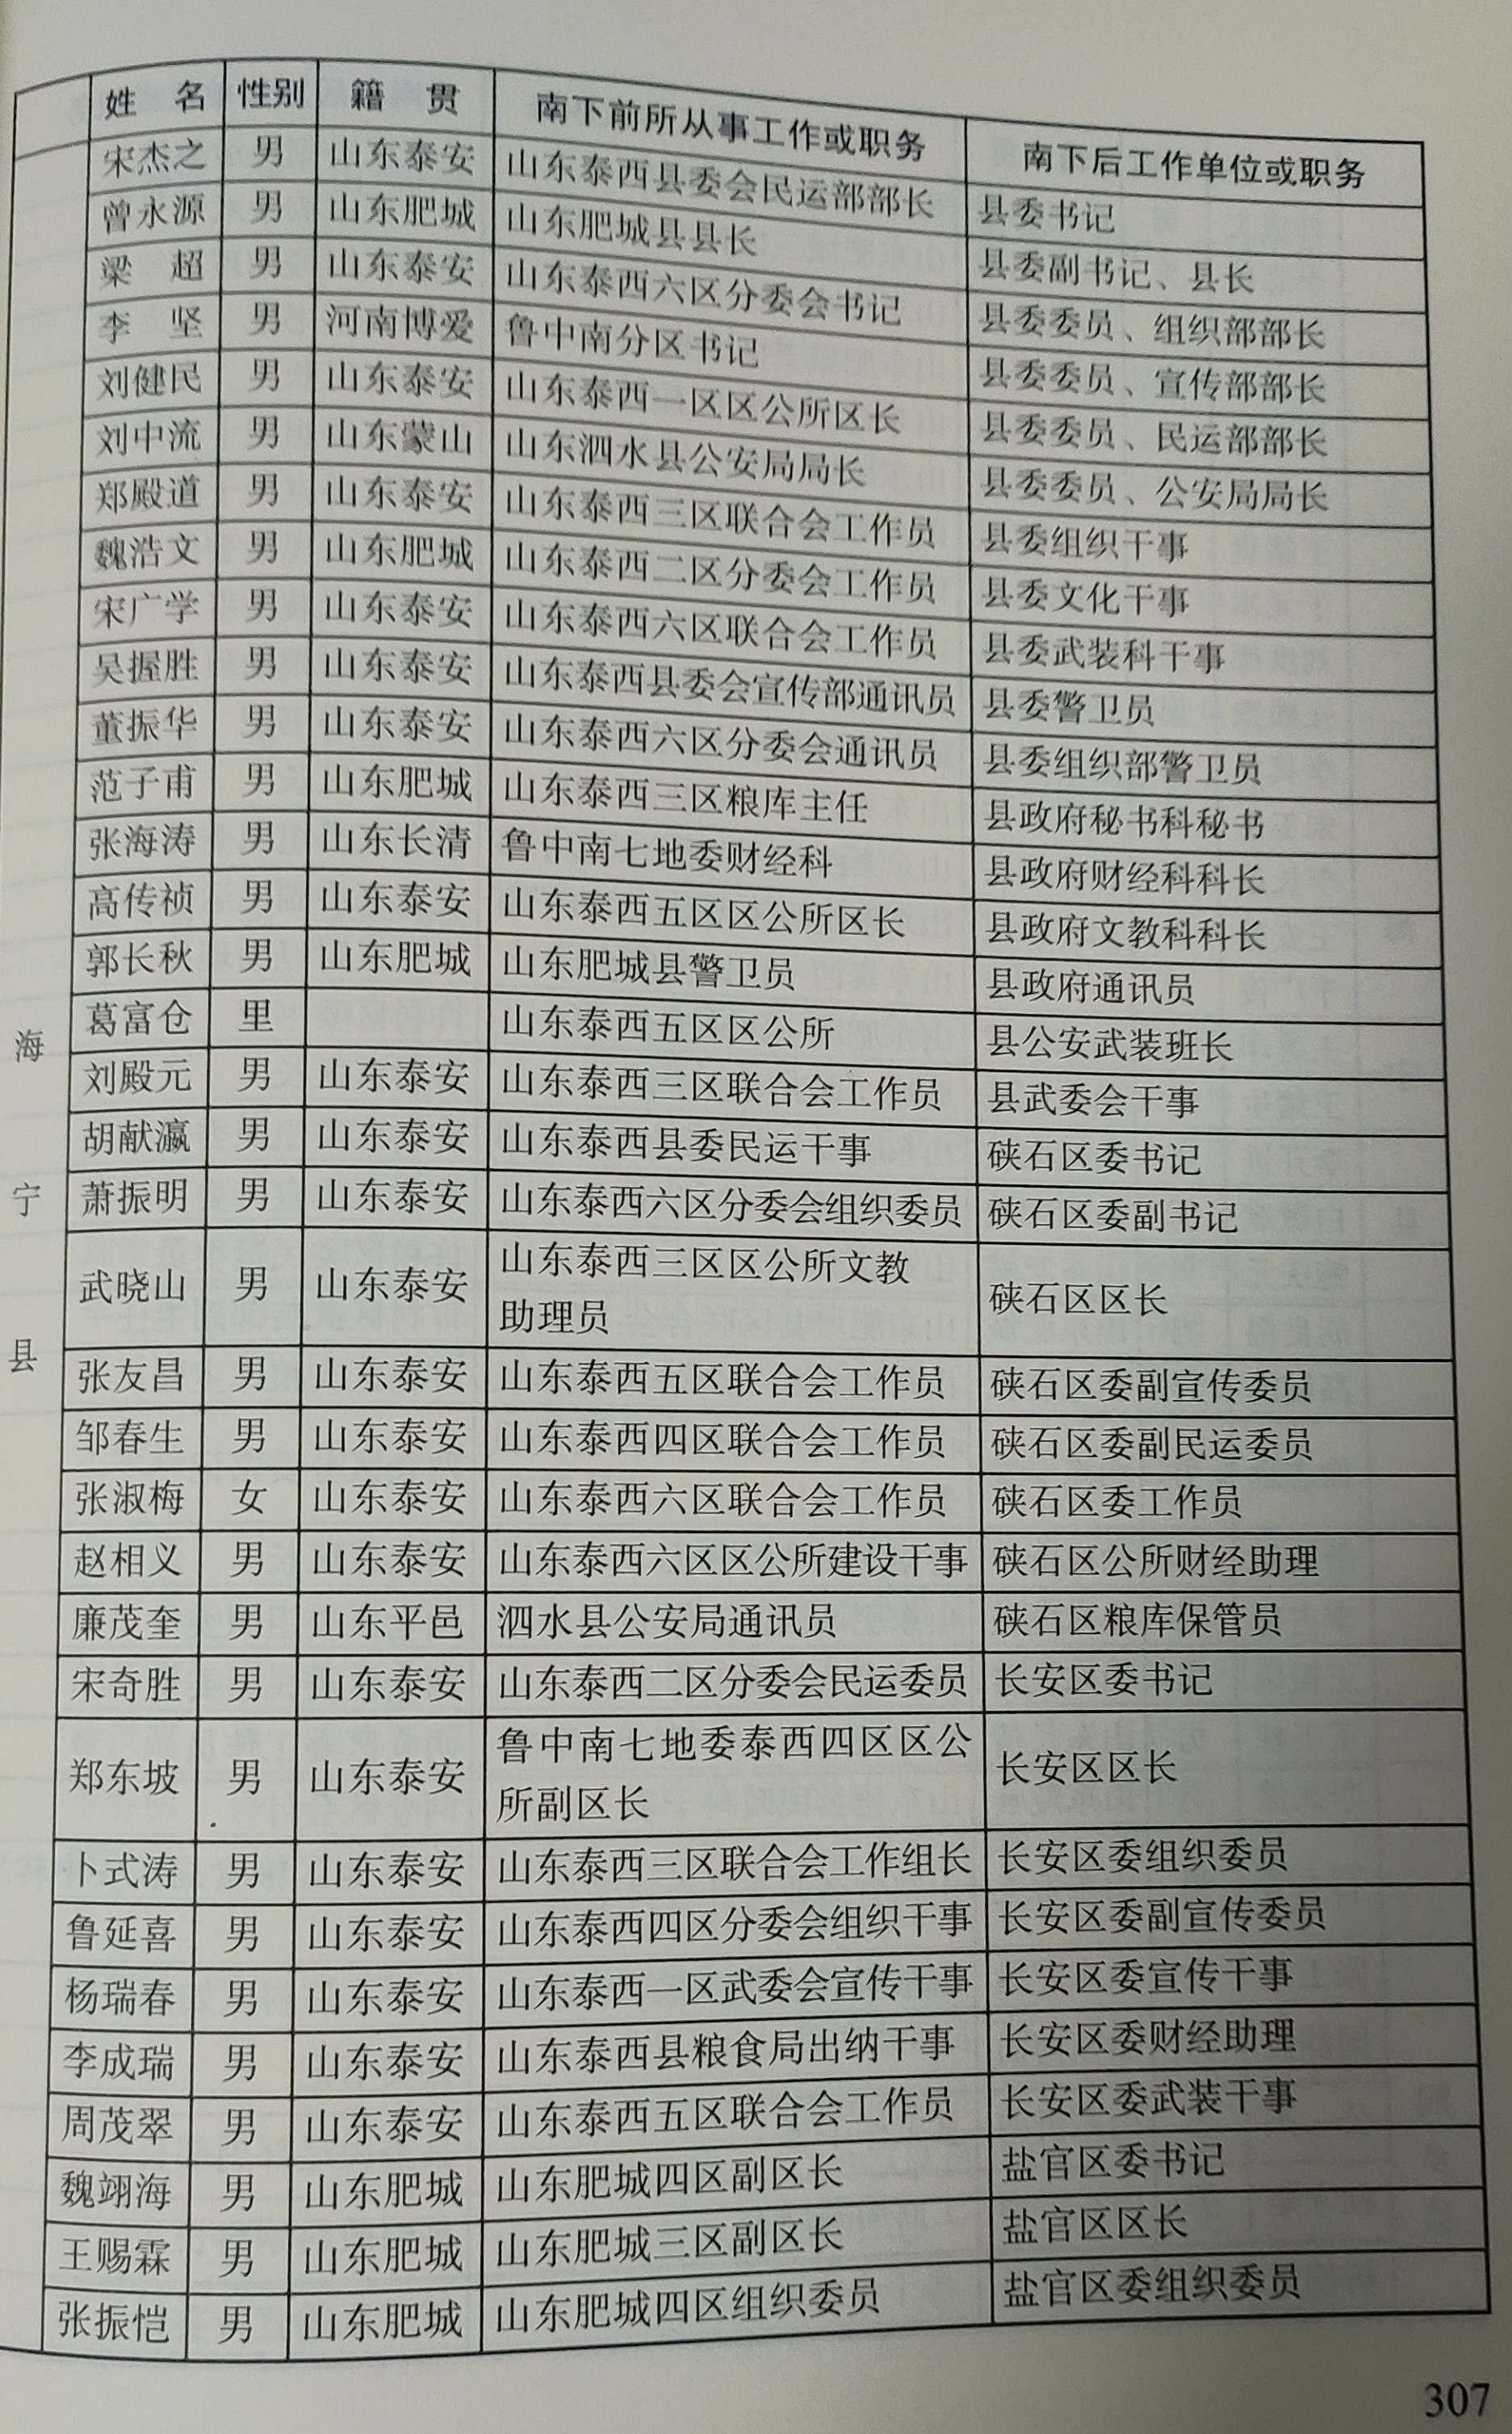 姓 名 性别 籍 贯 南下前所从事工作或职务 南下后工作单位或职务
宋杰之 男 山东泰安 山东泰西县委会民运部部长 县委书记
曾永源 男 山东肥城 山东肥城县县长 县委副书记、县长
梁 超 男 山东泰安 山东泰西六区分委会书记 县委委员、组织部部长
李 坚 男 河南博爱 鲁中南分区书记 县委委员、宣传部部长
刘健民 男 山东泰安 山东泰西一区区公所区长 县委委员、民运部部长
刘中流 男 山东蒙山 山东泗水县公安局局长 县委委员、公安局局长
郑殿道 男 山东泰安 山东泰西三区联合会工作员 县委组织干事
魏浩文 男 山东肥城 山东泰西二区分委会工作员 县委文化干事
宋广学 男 山东泰安 山东泰西六区联合会工作员 县委武装科干事
吴握胜 男 山东泰安 山东泰西县委会宣传部通讯员 县委警卫员
董振华 男 山东泰安 山东泰西六区分委会通讯员 县委组织部警卫员
范子甫 男 山东肥城 山东泰西三区粮库主任 县政府秘书科秘书
张海涛 男 山东长清 鲁中南七地委财经科 县政府财经科科长
高传祯 男 山东泰安 山东泰西五区区公所区长 县政府文教科科长
郭长秋 男 山东肥城 山东肥城县警卫员 县政府通讯员
葛富仓 里 山东泰西五区区公所 县公安武装班长
刘殿元 男 山东泰安 山东泰西三区联合会工作员 县武委会干事
胡献瀛 男 山东泰安 山东泰西县委民运干事 硖石区委书记
萧振明 男 山东泰安 山东泰西六区分委会组织委员 硖石区委副书记
武晓山 男 山东泰安 山东泰西三区区公所文教
助理员 硖石区区长
张友昌 男 山东泰安 山东泰西五区联合会工作员 硖石区委副宣传委员
邹春生 男 山东泰安 山东泰西四区联合会工作员 硖石区委副民运委员
张淑梅 女 山东泰安 山东泰西六区联合会工作员 硖石区委工作员
赵相义 男 山东泰安 山东泰西六区区公所建设干事 硖石区公所财经助理
廉茂奎 男 山东平邑 泗水县公安局通讯员 硖石区粮库保管员
宋奇胜 男 山东泰安 山东泰西二区分委会民运委员 长安区委书记
郑东坡 男 山东泰安 鲁中南七地委泰西四区区公
所副区长 长安区区长
卜式涛 男 山东泰安 山东泰西三区联合会工作组长 长安区委组织委员
鲁延喜 男 山东泰安 山东泰西四区分委会组织干事 长安区委副宣传委员
杨瑞春 男 山东泰安 山东泰西一区武委会宣传干事 长安区委宣传干事
李成瑞 男 山东泰安 山东泰西县粮食局出纳干事 长安区委财经助理
周茂翠 男 山东泰安 山东泰西五区联合会工作员 长安区委武装干事
魏翊海 男 山东肥城 山东肥城四区副区长 盐官区委书记
王赐霖 男 山东肥城 山东肥城三区副区长 盐官区区长
张振恺 男 山东肥城 山东肥城四区组织委员 盐官区委组织委员
海
宁
县
307